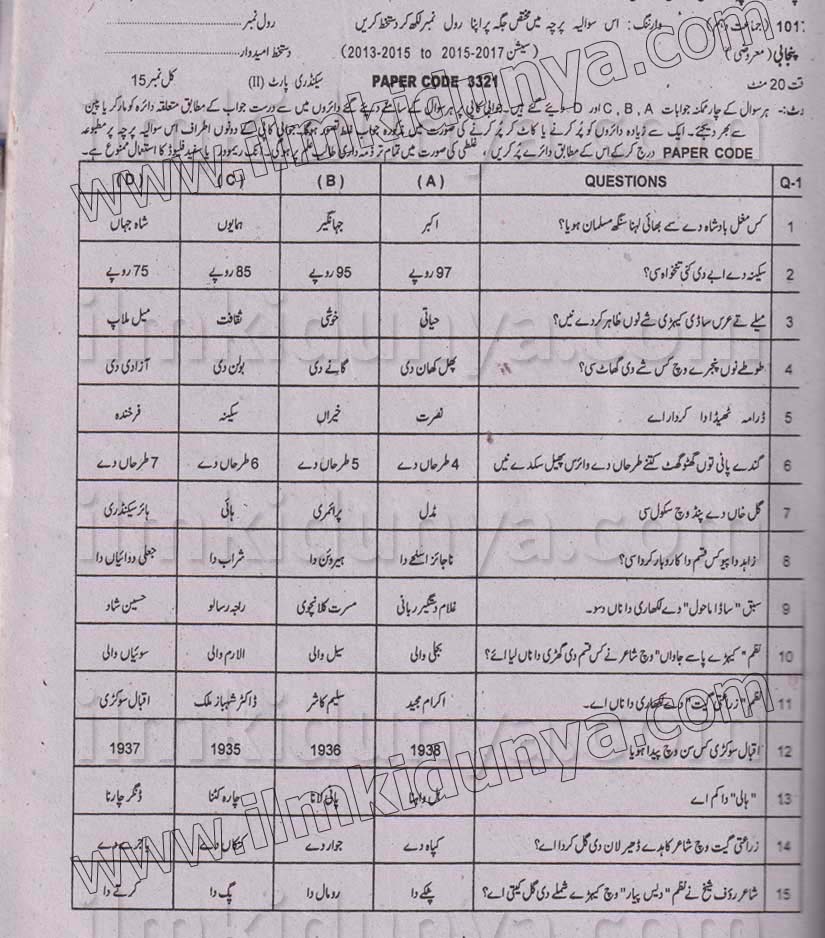 101 (جماعت دہم) وارننگ: اس سوالیہ پرچہ میں مختص جگہ پر اپنا رول نمبر لکھ کر دستخط کریں رول نمبر
پنجابی (معروضی) (سیشن 2013-2015 to 2015-2017) دستخط امیدوار
وقت 20 منٹ PAPER CODE 3321 سیکنڈری پارٹ (II) کل نمبر 15
نوٹ:- ہر سوال کے چار ممکنہ جوابات A ، B ، C اور D دیئے گئے ہیں۔ جوابی کاپی پر ہر سوال کے سامنے دیئے گئے دائروں میں سے درست جواب کے مطابق متعلقہ دائرہ کو مارکر یا پین
سے بھر دیجئے۔ ایک سے زیادہ دائروں کو پُر کرنے یا کاٹ کر پُر کرنے کی صورت میں مذکورہ جواب غلط تصور ہوگا۔ جوابی کاپی کے دونوں اطراف اس سوالیہ پرچہ پر مطبوعہ
PAPER CODE درج کر کے اس کے مطابق دائرے پُر کریں، غلطی کی صورت میں تمام تر ذمہ داری طالب علم پر ہوگی۔ انک ریموور یا سفید فلیوڈ کا استعمال ممنوع ہے۔
Q-1 QUESTIONS (A) (B) (C) (D)
1 کس مغل بادشاہ دے سے بھائی لہنا سنگھ مسلمان ہویا؟ اکبر جہانگیر ہمایوں شاہ جہاں
2 سکینہ دے ابے دی کنی تنخواہ سی؟ 97 روپے 95 روپے 85 روپے 75 روپے
3 میلے تے عرس ساڈی کیہڑی شے نوں ظاہر کردے نیں؟ حیاتی خوشی ثقافت میل ملاپ
4 طوطے نوں پنجرے وچ کس شے دی گھاٹ سی؟ پھل کھان دی گانے دی بولن دی آزادی دی
5 ڈرامہ ٹھیڈا دا کردار اے نصرت خیراں سکینہ فرخندہ
6 گندے پانی توں گھٹو گھٹ کتنے طرحاں دے وائرس پھیل سکدے نیں 4 طرحاں دے 5 طرحاں دے 6 طرحاں دے 7 طرحاں دے
7 گل خاں دے پنڈ وچ سکول سی مڈل پرائمری ہائی ہائر سیکنڈری
8 زاہد دا پیو کس قسم دا کاروبار کردا سی؟ ناجائز اسلحے دا ہیروئن دا شراب دا جعلی دوائیاں دا
9 سبق "ساڈا ماحول" دے لکھاری دا ناں دسو۔ غلام دستگیر ربانی مسرت کلانچوی راجہ رسالو حسین شاد
10 نظم "کیہڑے پاسے جاواں" وچ شاعر نے کس قسم دی گھڑی دا ناں لیا اے؟ بجلی والی سیل والی الارم والی سوئیاں والی
11 نظم "زراعتی گیت" دے لکھاری دا ناں اے۔ اکرام مجید سلیم کاشر ڈاکٹر شہباز ملک اقبال سوکڑی
12 اقبال سوکڑی کس سن وچ پیدا ہویا 1938 1936 1935 1937
13 "ہالی" دا کم اے ہل واہنا پانی لانا چارہ کٹنا ڈنگر چارنا
14 زراعتی گیت وچ شاعر کاہدے ڈھیر لان دی گل کردا اے؟ کپاہ دے جوار دے کنکاں دے باجرے دے
15 شاعر رؤف شیخ نے نظم "دیس پیار" وچ کیہڑے شملے دی گل کیتی اے؟ پٹکے دا رومال دا پگ دا کرتے دا
www.ilmkidunya.com
ilmkidunya.com
ilmkidunya.com
ilmkidunya.com
www.ilmkidunya.com